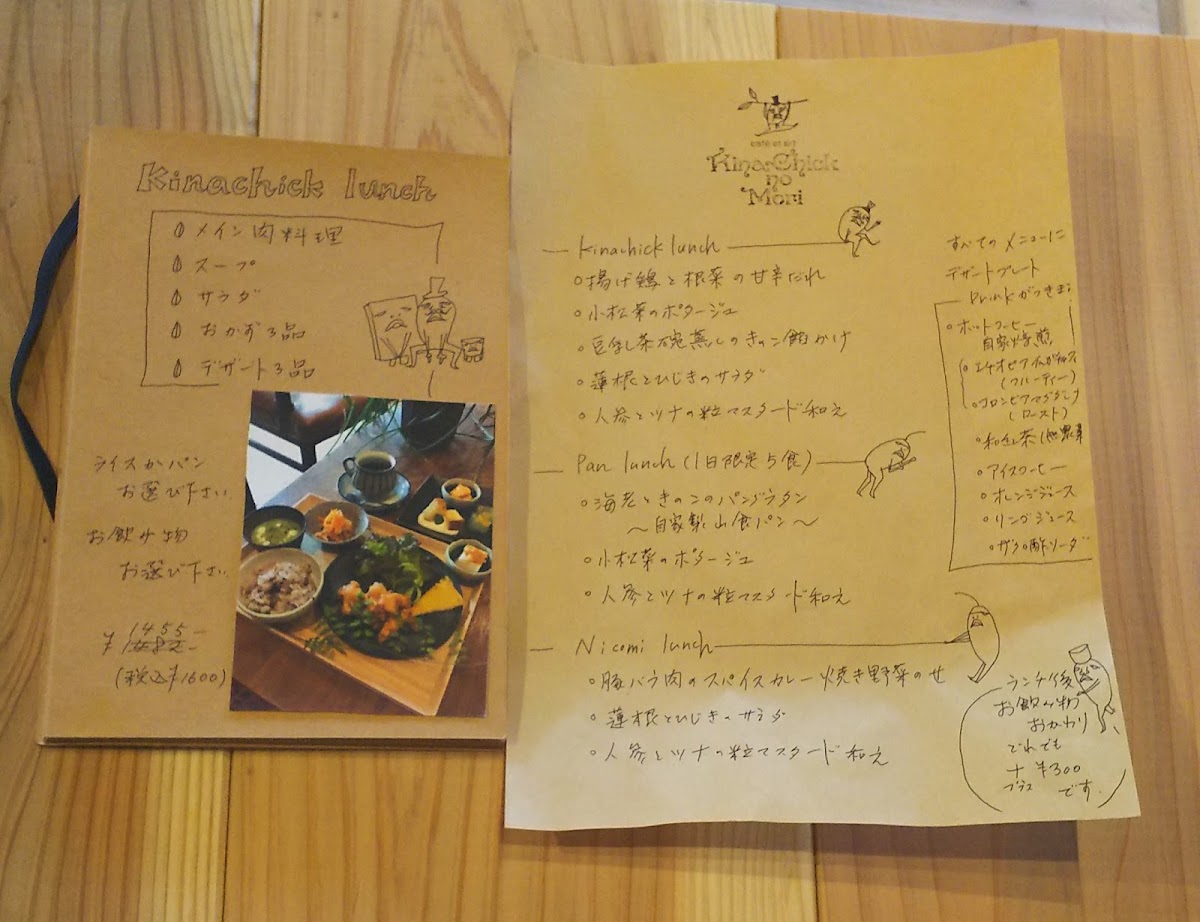 Kinachick lunch
メイン肉料理
スープ
サラダ
おかず3品
デザート3品
ライスかパン
お選び下さい
お飲み物
お選び下さい
¥1455-
(税込¥1600)
café et art
KinarChick
no
Mori
Kinachick lunch
揚げ鶏と根菜の甘辛だれ
小松菜のポタージュ
豆乳茶碗蒸しのきのこ餡かけ
蓮根とひじきのサラダ
人参とツナの粒マスタード和え
Pan lunch (1日限定5食)
海老ときのこのパングラタン
〜自家製山食パン〜
小松菜のポタージュ
人参とツナの粒マスタード和え
Nicomi lunch
豚バラ肉のスパイスカレー焼き野菜のせ
蓮根とひじきのサラダ
人参とツナの粒マスタード和え
すべてのメニューに
デザートプレート
Drinkがつきます
ホットコーヒー
自家焙煎
エチオピア
(フルーティー)
コロンビア
(ロースト)
和紅茶
アイスコーヒー
オレンジジュース
リンゴジュース
ザクロ酢ソーダ
ランチ後
お飲み物
おかわり
どれでも
+ ¥300
プラス です。